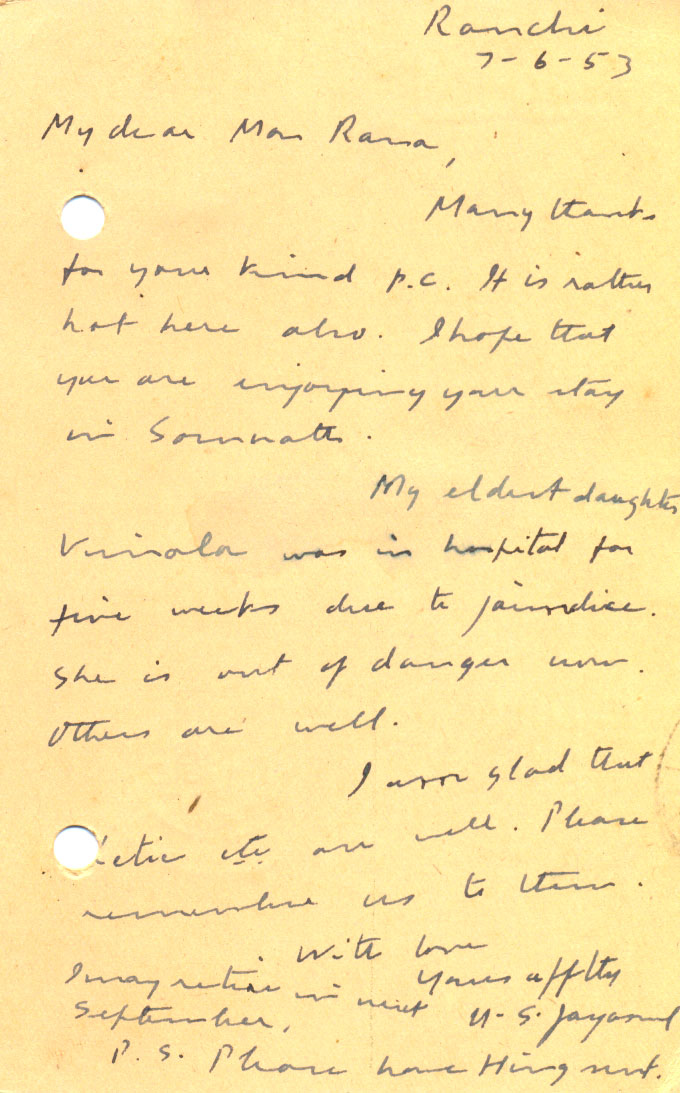 Ranchi
7-6-53
My dear Mon Rana,
Many thanks
for your kind p.c. It is rather
hot here also. I hope that
you are enjoying your stay
in Somnath.
My eldest daughter
Vimola was in hospital for
five weeks due to jaundice.
She is out of danger now.
Others are well.
I am glad that
etc are well. Please
remember us to them.
With love
I may retire in next
September.
Yours affltly
P.S. Please have Hing sent.